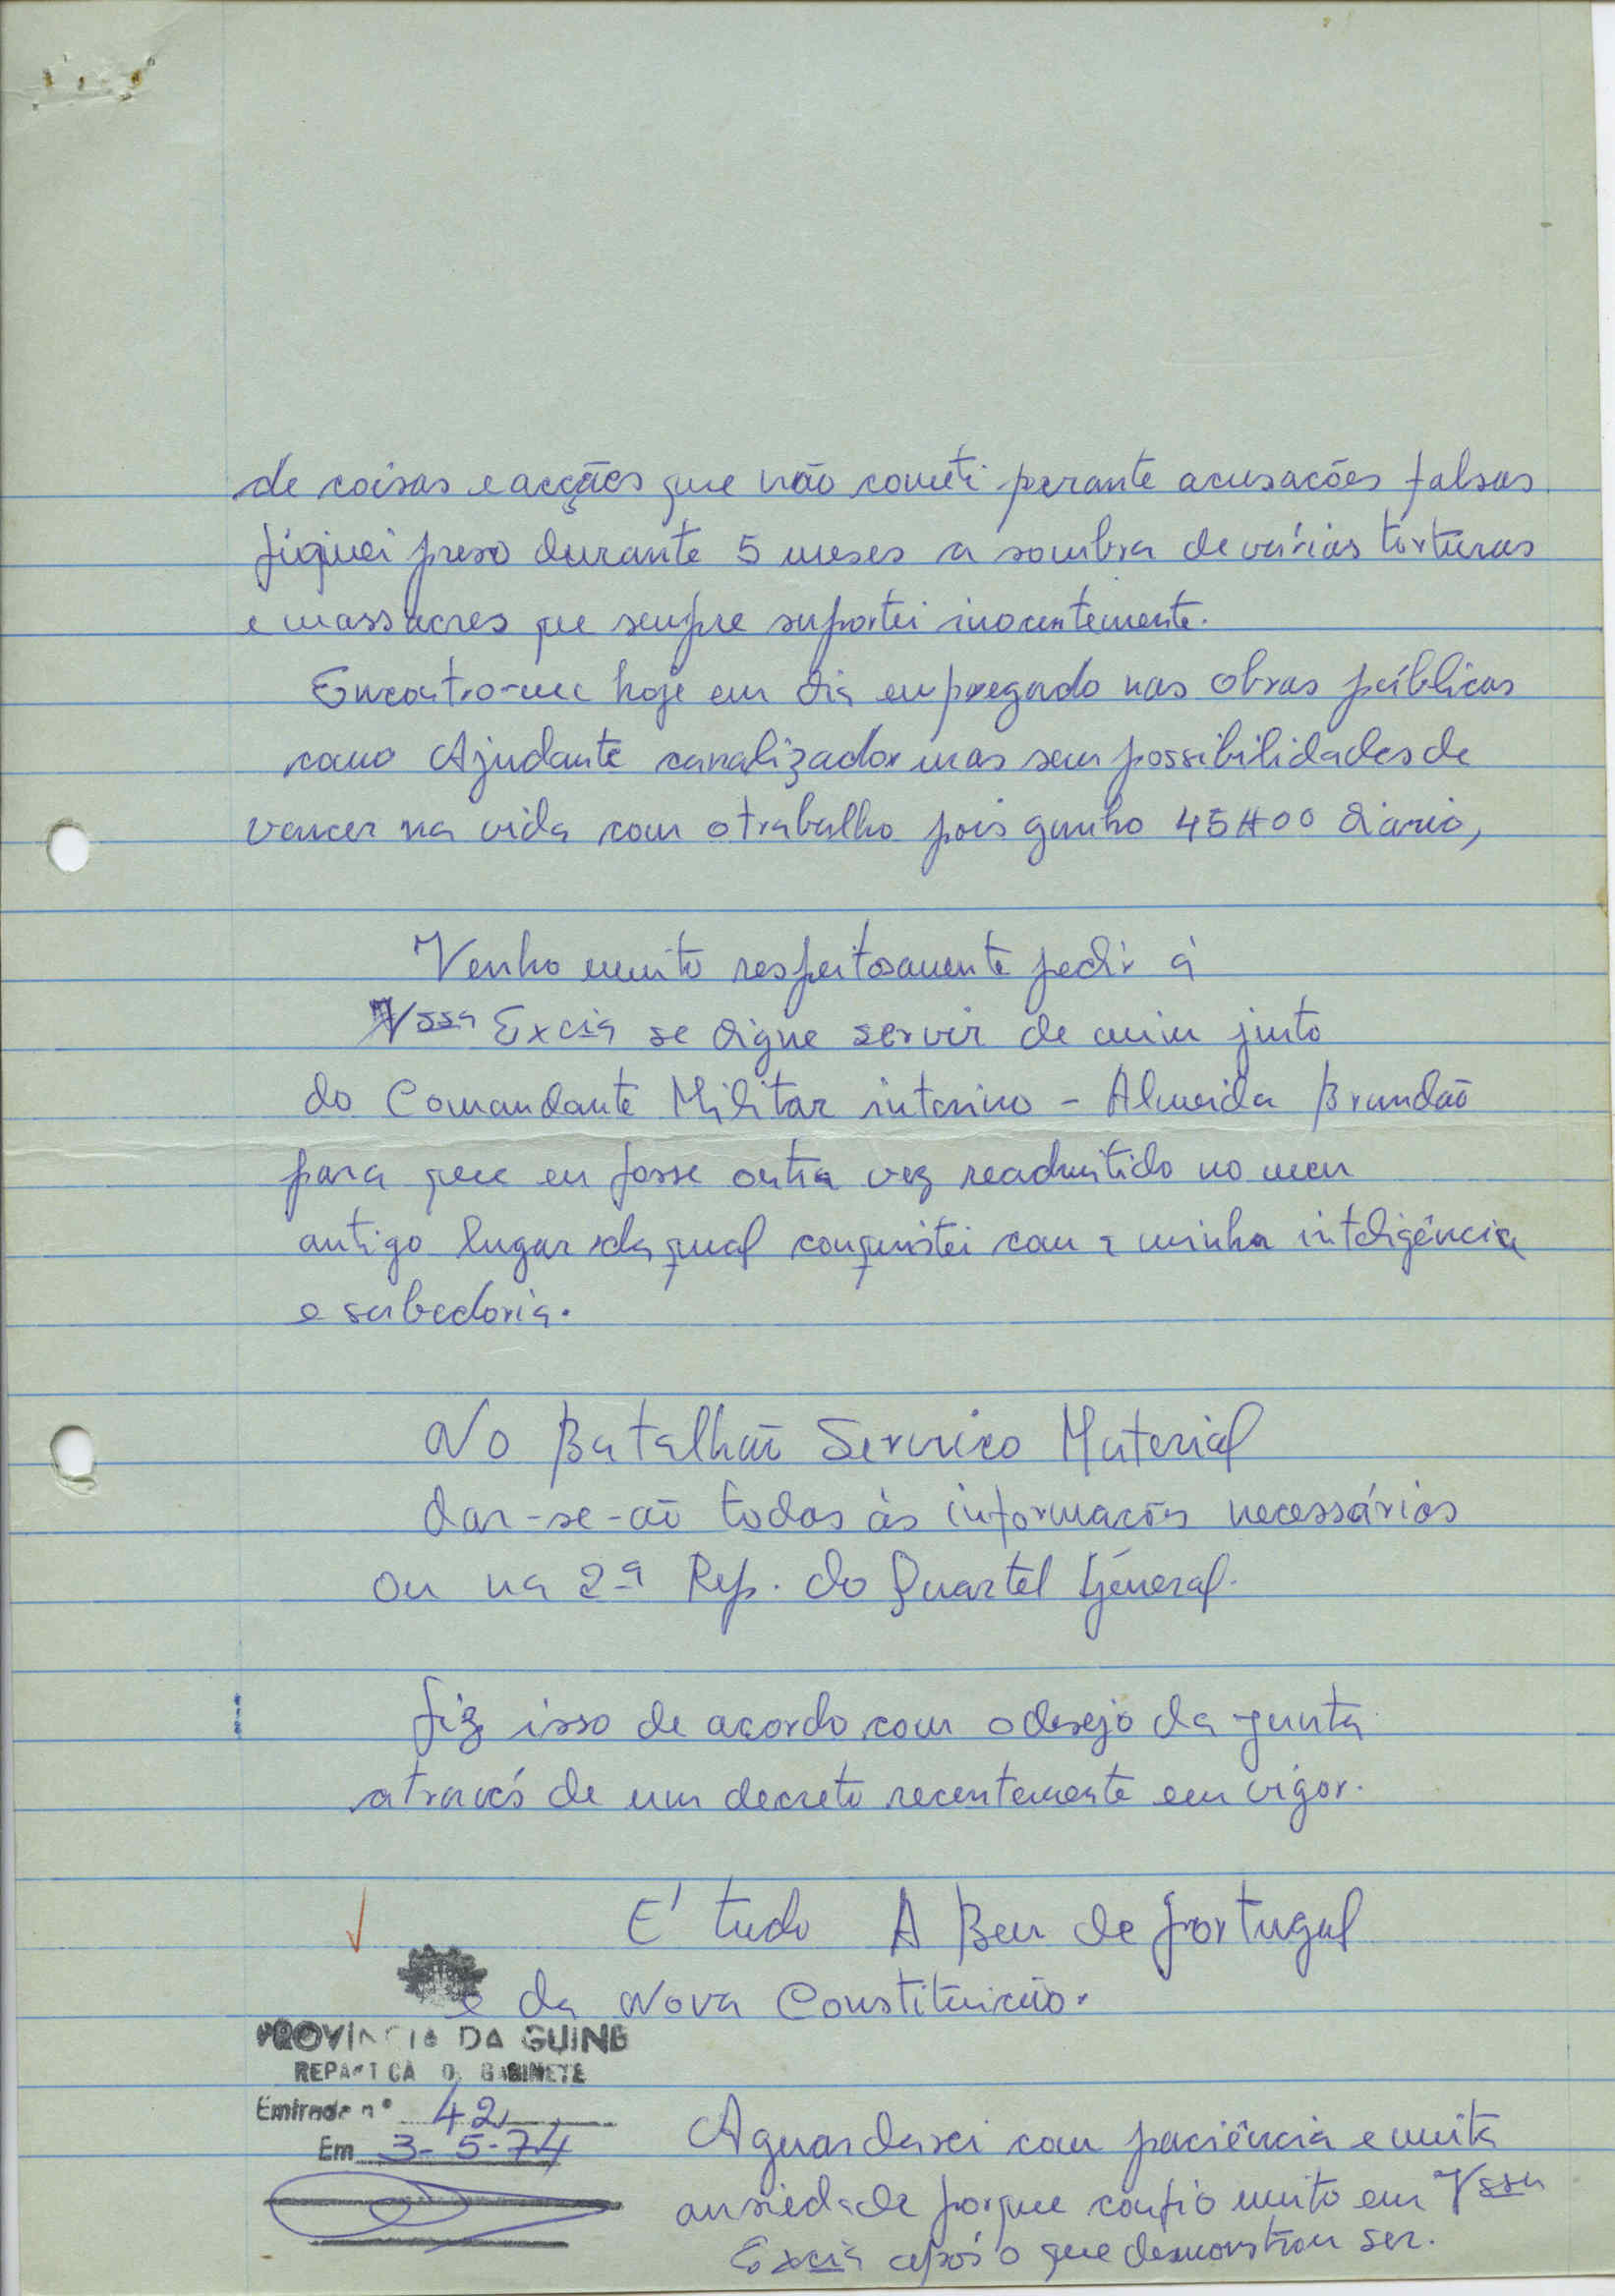 de coisas e acções que não cometi perante acusacões falsas
fiquei preso durante 5 meses a sombra de várias torturas
e massacres que sempre suportei inocentemente.
Encontro-me hoje em dia empregado nas obras públicas
como Ajudante canalizador mas sem possibilidades de
vencer na vida com o trabalho pois ganho 45$00 diario,
Venho muito respeitosamente pedir á
Vssa Excia se digne servir de mim junto
do Comandante Militar interino - Almeida Brandão
para que eu fosse outra vez readmitido no meu
antigo lugar da qual conquistei com a minha inteligência
e sabedoria.
No Batalhão Servico Material
dar-se-ão todas às informacões necessárias
ou na 2ª Rep. do Quartel Géneral.
fiz isso de acordo com o desejo da junta
através de um decreto recentemente em vigor.
E' tudo A Bem de portugal
e da Nova Constituicão.
PROVINCIA DA GUINE
REPARTICA D. GABINETE
Entrada nº 42
Em 3-5-74
Aguardarei com paciência e muita
ansiedade porque confio muito em Vssa
Excia após o que demonstrou ser.